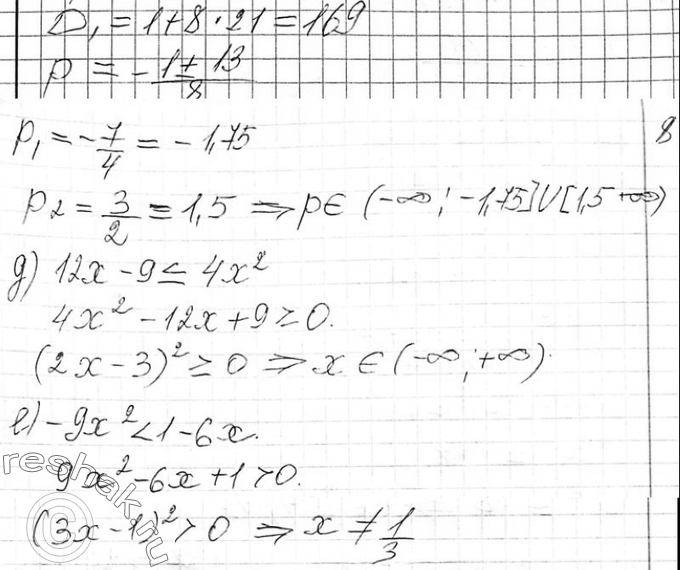 D₁ = 1+8·21 = 169
p = -(1±13)/8
p₁ = -7/4 = -1,75
8
p₂ = 3/2 = 1,5 ⇒ p ∈ (-∞; -1,75] ∪ [1,5 +∞)
д) 12x - 9 ≤ 4x²
4x² - 12x + 9 ≥ 0.
(2x - 3)² ≥ 0 ⇒ x ∈ (-∞; +∞).
е) -9x² < 1 - 6x.
9x² - 6x + 1 > 0.
(3x - 1)² > 0 ⇒ x ≠ 1/3
reshak.ru